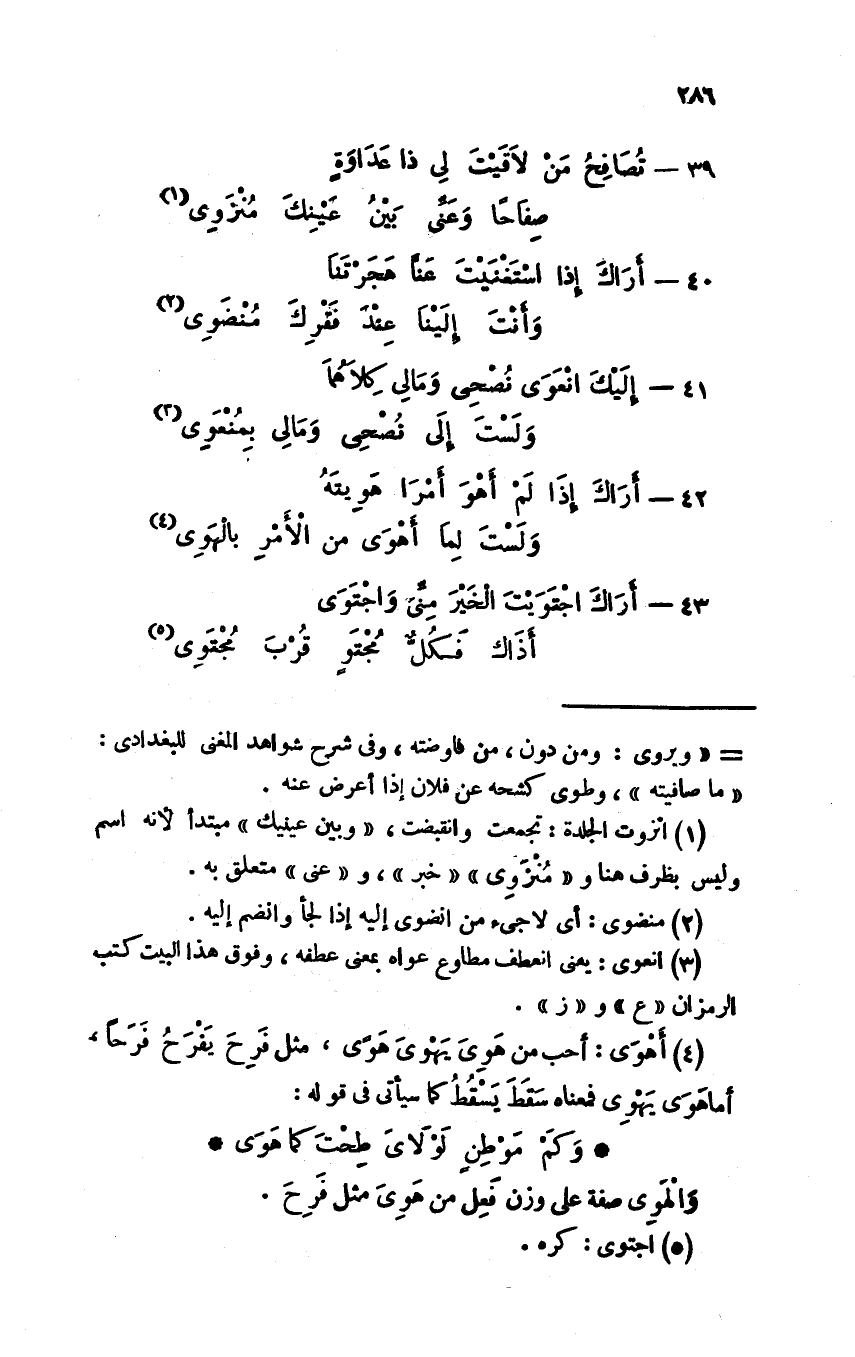 ٢٨٦
٣٩ — تُصَافِحُ مَنْ لاَقَيْتَ لِي ذا عَدَاوَةٍ
صِفاَحًا وَعَنِّى بَيْنُ عَيْنِكَ مُنْزَوِى(١)
٤٠ — أَرَاكَ إِذا اسْتَغْنَيْتَ عَنَّا هَجَرْتَنَا
وَأَنْتَ إِلَيْنَا عِنْدَ فَقْرِكَ مُنْضَوِى(٢)
٤١ — إِلَيْكَ انْعَوَى نُصْحِى وَمَالِي كِلاَهُمَا
وَلَسْتَ إِلَى نُصْحِى وَمَالِى بِمُنْعَوِى(٣)
٤٢ — أَرَاكَ إِذَا لَمْ أَهْوَ أَمْرًا هَوِيتَهُ
وَلَسْتَ لِمَا أَهْوَى من الْأَمْرِ بالْهَوِى(٤)
٤٣ — أَرَاكَ اجْتَوَيْتَ الْخَيْرَ مِنِّىَ وَاجْتَوَى
أَذَاكَ فَكُلٌّ مُجْتَوٍ قُرْبَ مُجْتَوِى(٥)
= « ويروى : ومن دون ، من فاوضته ، وفى شرح شواهد المغنى للبغدادى :
« ما صافيته » ، وطوى كشحه عن فلان إذا أعرض عنه .
(١) انزوت الجلدة : تجمعت وانقبضت ، « وبين عينيك » مبتدأ لأنه اسم
وليس بظرف هنا و « مُنْزَوِى » « خبر » ، و « عنى » متعلق به .
(٢) منضوى : أى لاجىء من انضوى إليه إذا لجأ وانضم إليه .
(٣) انعوى : يعنى انعطف مطاوع عواه بمعنى عطفه ، وفوق هذا البيت كتب
الرمزان « ع » و « ز » .
(٤) أَهْوَى : أحب من هَوِىَ يَهْوَىَ هَوًى ، مثل فَرِحَ يَفْرَحُ فَرَحاً ،
أما هَوَى يَهْوِى فمعناه سَقَطَ يَسْقُطُ كما سيأتى فى قوله :
• وَكَمْ مَوْطِنٍ لَوْلَاىَ طِحْتَ كما هَوَى •
وَالْهَوِى صفة على وزن فَعِل من هَوِىَ مثل فَرِحَ .
(٥) اجتوى : كره .